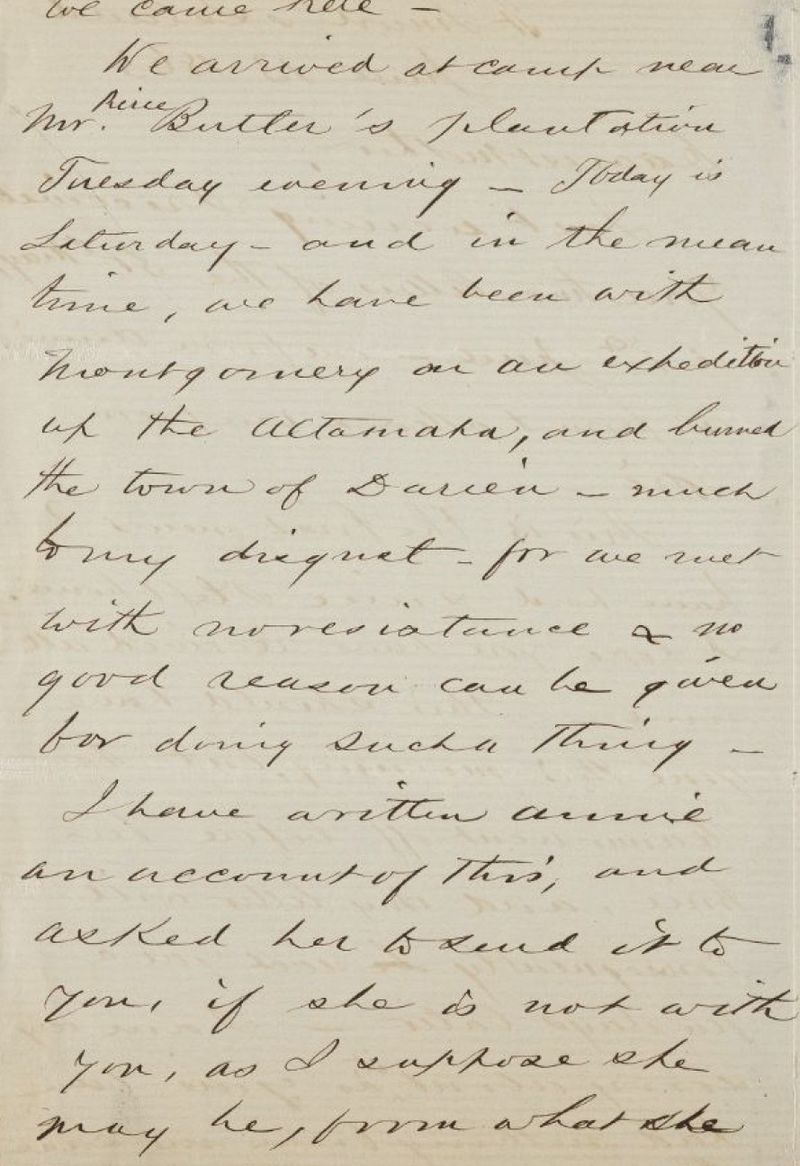 we came here –
We arrived at camp near
Mr. Pierce Butler's plantation
Tuesday evening – Today is
Saturday – and in the mean
time, we have been with
Montgomery on an expedition
up the Altamaha, and burned
the town of Darien – much
to my disgust – for we met
with no resistance & no
good reason can be given
for doing such a thing –
I have written Annie
an account of this, and
asked her to send it to
you, if she is not with
you, as I suppose she
may be, from what she